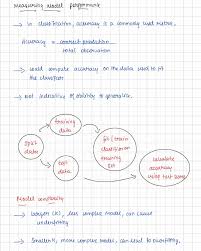 measuring Model performance
→ in classification, accuracy is a commonly used metric,
Accuracy = correct prediction
total observation
→ could compute accuracy on the data used to fit
the classifier
→ not indicative of ability to generalize.
training
data
split
data
test
data
fit / train
classifier on
training
set
calculate
accuracy
using test
Model complexity
→ larger (k), less complex model, can cause
underfitting
→ smaller k, more complex model, can lead to overfitting.